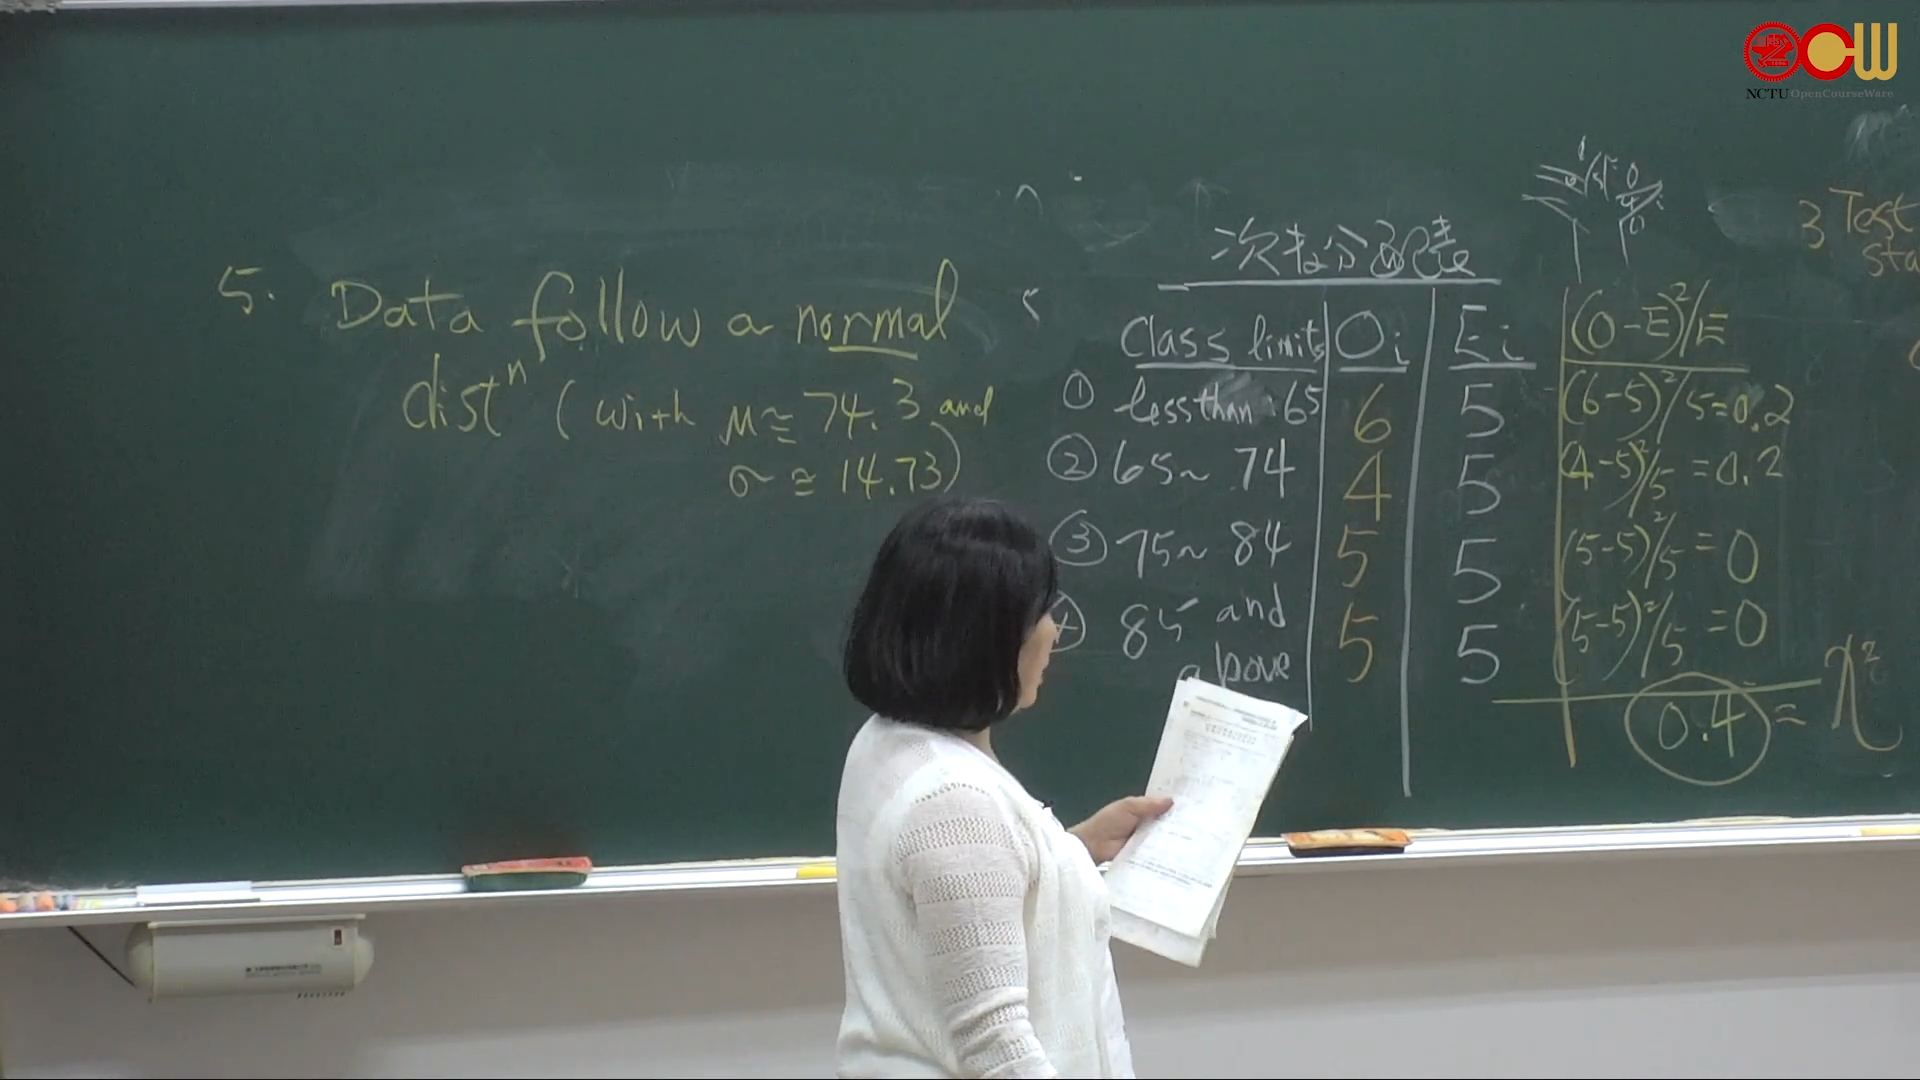 NCTU OpenCourseWare
5. Data follow a normal
distⁿ (with μ ≅ 74.3 and
σ ≅ 14.73)
次数分配表
Class limits Oi Ei (O-E)²/E
① less than 65 6 5 (6-5)²/5=0.2
② 65~74 4 5 (4-5)²/5=0.2
③ 75~84 5 5 (5-5)²/5=0
④ 85 and 5 5 (5-5)²/5=0
above
0.4 = χ²
3 Test
sta